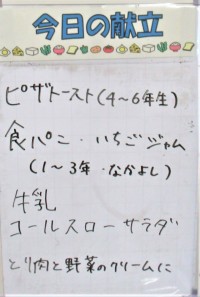 今日の献立
ピザトースト(4〜6年生)
食パン・いちごジャム
(1〜3年・なかよし)
牛乳
コールスローサラダ
とり肉と野菜のクリームに